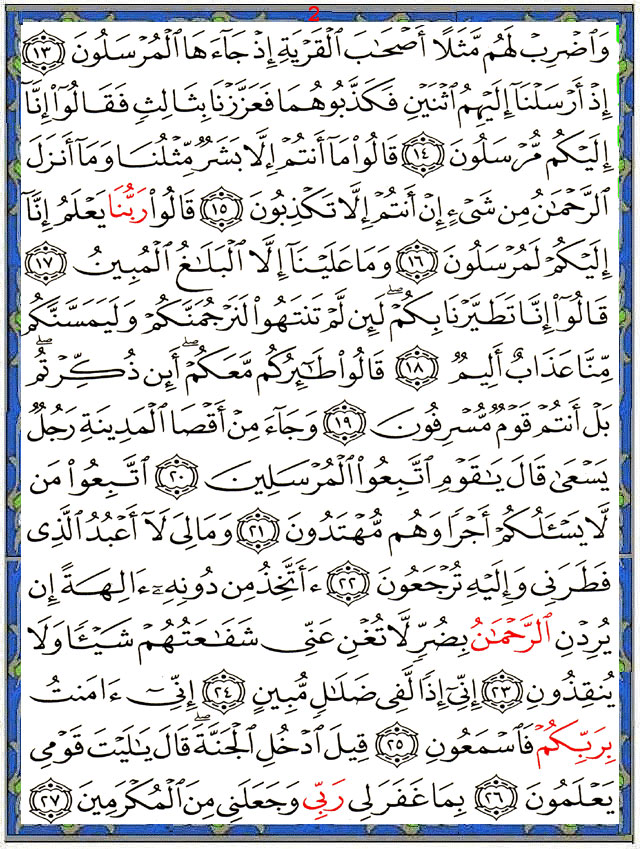 2
وَٱضۡرِبۡ لَهُم مَّثَلًا أَصۡحَٰبَ ٱلۡقَرۡيَةِ إِذۡ جَآءَهَا ٱلۡمُرۡسَلُونَ ١٣
إِذۡ أَرۡسَلۡنَآ إِلَيۡهِمُ ٱثۡنَيۡنِ فَكَذَّبُوهُمَا فَعَزَّزۡنَا بِثَالِثٖ فَقَالُوٓاْ إِنَّآ
إِلَيۡكُم مُّرۡسَلُونَ ١٤ قَالُواْ مَآ أَنتُمۡ إِلَّا بَشَرٞ مِّثۡلُنَا وَمَآ أَنزَلَ
ٱلرَّحۡمَٰنُ مِن شَيۡءٍ إِنۡ أَنتُمۡ إِلَّا تَكۡذِبُونَ ١٥ قَالُواْ رَبُّنَا يَعۡلَمُ إِنَّآ
إِلَيۡكُمۡ لَمُرۡسَلُونَ ١٦ وَمَا عَلَيۡنَآ إِلَّا ٱلۡبَلَٰغُ ٱلۡمُبِينُ ١٧
قَالُوٓاْ إِنَّا تَطَيَّرۡنَا بِكُمۡۖ لَئِن لَّمۡ تَنتَهُواْ لَنَرۡجُمَنَّكُمۡ وَلَيَمَسَّنَّكُم
مِّنَّا عَذَابٌ أَلِيمٞ ١٨ قَالُواْ طَٰٓئِرُكُم مَّعَكُمۡۖ أَئِن ذُكِّرۡتُمۖ
بَلۡ أَنتُمۡ قَوۡمٞ مُّسۡرِفُونَ ١٩ وَجَآءَ مِنۡ أَقۡصَا ٱلۡمَدِينَةِ رَجُلٞ
يَسۡعَىٰ قَالَ يَٰقَوۡمِ ٱتَّبِعُواْ ٱلۡمُرۡسَلِينَ ٢٠ ٱتَّبِعُواْ مَن
لَّا يَسۡـَٔلُكُمۡ أَجۡرٗا وَهُم مُّهۡتَدُونَ ٢١ وَمَالِيَ لَآ أَعۡبُدُ ٱلَّذِي
فَطَرَنِي وَإِلَيۡهِ تُرۡجَعُونَ ٢٢ ءَأَتَّخِذُ مِن دُونِهِۦٓ ءَالِهَةً إِن
يُرِدۡنِ ٱلرَّحۡمَٰنُ بِضُرّٖ لَّا تُغۡنِ عَنِّي شَفَٰعَتُهُمۡ شَيۡـٔٗا وَلَا
يُنقِذُونِ ٢٣ إِنِّيٓ إِذٗا لَّفِي ضَلَٰلٖ مُّبِينٍ ٢٤ إِنِّيٓ ءَامَنتُ
بِرَبِّكُمۡ فَٱسۡمَعُونِ ٢٥ قِيلَ ٱدۡخُلِ ٱلۡجَنَّةَۖ قَالَ يَٰلَيۡتَ قَوۡمِي
يَعۡلَمُونَ ٢٦ بِمَا غَفَرَ لِي رَبِّي وَجَعَلَنِي مِنَ ٱلۡمُكۡرَمِينَ ٢٧